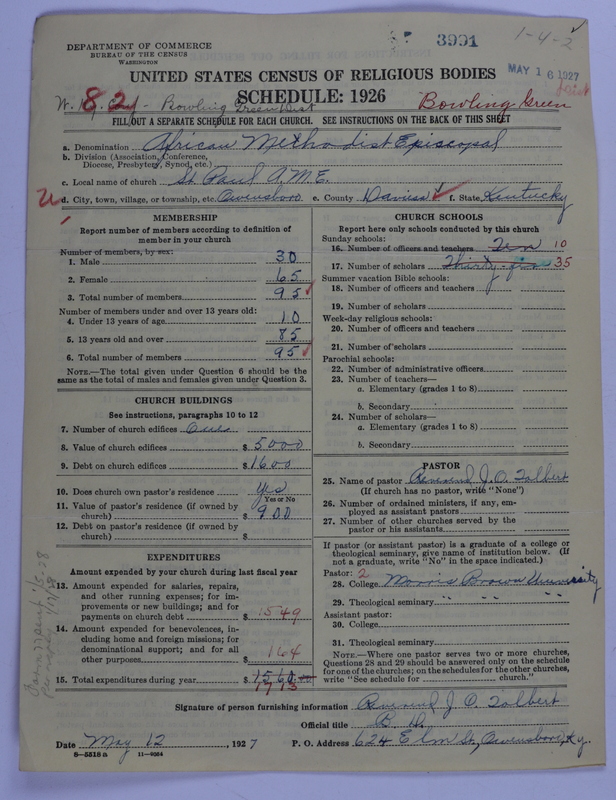 DEPARTMENT OF COMMERCE
BUREAU OF THE CENSUS
WASHINGTON
3991
1-4-2
MAY 16 1927
UNITED STATES CENSUS OF RELIGIOUS BODIES
SCHEDULE: 1926
82
W. Ky. Conf - Bowling Green Dist
Bowling Green Dist
FILL OUT A SEPARATE SCHEDULE FOR EACH CHURCH. SEE INSTRUCTIONS ON THE BACK OF THIS SHEET
a. Denomination African Methodist Episcopal
b. Division (Association, Conference, Diocese, Presbytery, Synod, etc.)
c. Local name of church St. Paul A.M.E.
d. City, town, village, or township, etc. Owensboro e. County Daviess f. State Kentucky
MEMBERSHIP
Report number of members according to definition of member in your church
Number of members, by sex:
1. Male 30
2. Female 65
3. Total number of members 95
Number of members under and over 13 years old:
4. Under 13 years of age 10
5. 13 years old and over 85
6. Total number of members 95
NOTE.—The total given under Question 6 should be the same as the total of males and females given under Question 3.
CHURCH BUILDINGS
See instructions, paragraphs 10 to 12
7. Number of church edifices One
8. Value of church edifices $5000
9. Debt on church edifices $1600
10. Does church own pastor's residence Yes
Yes or No
11. Value of pastor's residence (if owned by church) $900
12. Debt on pastor's residence (if owned by church) $
EXPENDITURES
Amount expended by your church during last fiscal year
13. Amount expended for salaries, repairs, and other running expenses; for improvements or new buildings; and for payments on church debt $1549
14. Amount expended for benevolences, including home and foreign missions; for denominational support; and for all other purposes 164
15. Total expenditures during year $1560.00
1713
CHURCH SCHOOLS
Report here only schools conducted by this church
Sunday schools:
16. Number of officers and teachers Ten 10
17. Number of scholars Thirty-five 35
Summer vacation Bible schools:
18. Number of officers and teachers
19. Number of scholars
Week-day religious schools:
20. Number of officers and teachers
21. Number of scholars
Parochial schools:
22. Number of administrative officers
23. Number of teachers—
a. Elementary (grades 1 to 8)
b. Secondary
24. Number of scholars—
a. Elementary (grades 1 to 8)
b. Secondary
PASTOR
25. Name of pastor Reverend J. O. Talbert
(If church has no pastor, write "None")
26. Number of ordained ministers, if any, employed as assistant pastors
27. Number of other churches served by the pastor or his assistants
If pastor (or assistant pastor) is a graduate of a college or theological seminary, give name of institution below. (If not a graduate, write "No" in the space indicated.)
Pastor: 2
28. College Morris Brown University
29. Theological seminary " " "
Assistant pastor:
30. College
31. Theological seminary
NOTE.—Where one pastor serves two or more churches, Questions 28 and 29 should be answered only on the schedule for one of the churches; on the schedules for the other churches, write "See schedule for church."
Signature of person furnishing information Reverend J. O. Talbert
Official title
Date May 12, 1927 P. O. Address 624 Elm St., Owensboro, Ky.
8—5518 a 11—9064